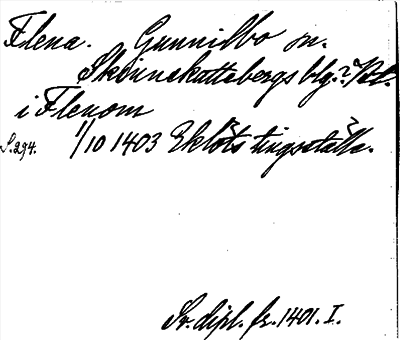 Flena. Gunnilbo sn.
Skinnskattebergs blg.? Vstm.
i Flenom
1/10 1403 Eklöts tingställe.
S. 294.
Sv. dipl. fr. 1401. I.